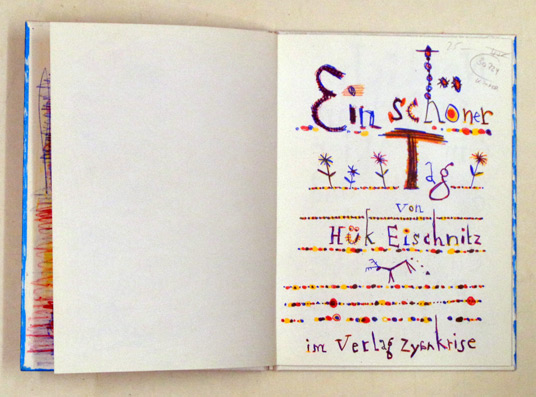 25.-
Ein schöner
Tag
von
Hük Eischnitz
im Verlag Zyankrise